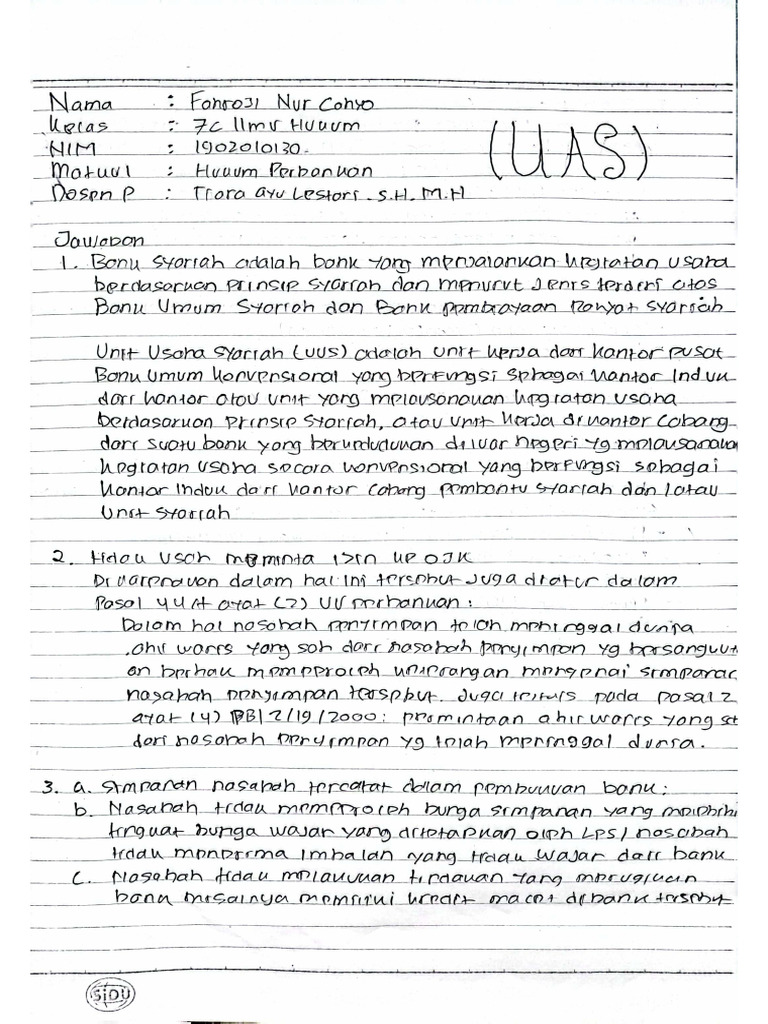 Nama : Fahrozi Nur Cahyo
Kelas : 7C Ilmu Hukum
NIM : 1902010130.
Matkul : Hukum Perbankan
Dosen P : Tiara ayu Lestari. S.H. M.H
(UAS)
Jawaban
1. Bank Syariah adalah bank yang menjalankan kegiatan usaha
berdasarkan prinsip syariah dan menurut Jenis terdiri atas
Bank Umum Syariah dan Bank pembiayaan Rakyat syariah
Unit Usaha Syariah (UUS) adalah unit kerja dari kantor pusat
Bank Umum konvensional yang berfungsi sebagai kantor Induk
dari kantor atau unit yang melaksanakan kegiatan usaha
berdasarkan prinsip syariah, atau unit kerja dikantor cabang
dari suatu bank yang berkedudukan diluar negeri yg melaksanakan
kegiatan usaha secara konvensional yang berfungsi sebagai
kantor Induk dari kantor cabang pembantu syariah dan/atau
Unit syariah
2. tidak usah meminta izin ke OJK
Di karenakan dalam hal ini tersebut Juga diatur dalam
Pasal ayat (2) UU perbankan :
Dalam hal nasabah penyimpan telah meninggal dunia
.ahir waris yang sah dari nasabah penyimpan yg bersangkut
an berhak memperoleh keterangan mengenai simpanan
nasabah penyimpan tersebut. Juga tertulis pada pasal 2
ayat (4) PBI 2/19/2000 : permintaan ahir waris yang sa
dari nasabah penyimpan yg telah meninggal dunia.
3. a. Simpanan nasabah tercatat dalam pembukuan bank :
b. Nasabah tidak memperoleh bunga simpanan yang melebihi
tingkat bunga wajar yang ditetapkan oleh LPS/ nasabah
tidak menerima Imbalan yang tidak wajar dari bank
c. Nasabah tidak melakukan tindakan yang merugikan
bank misalnya memiliki kredit macet dibank tersebut
SiDU